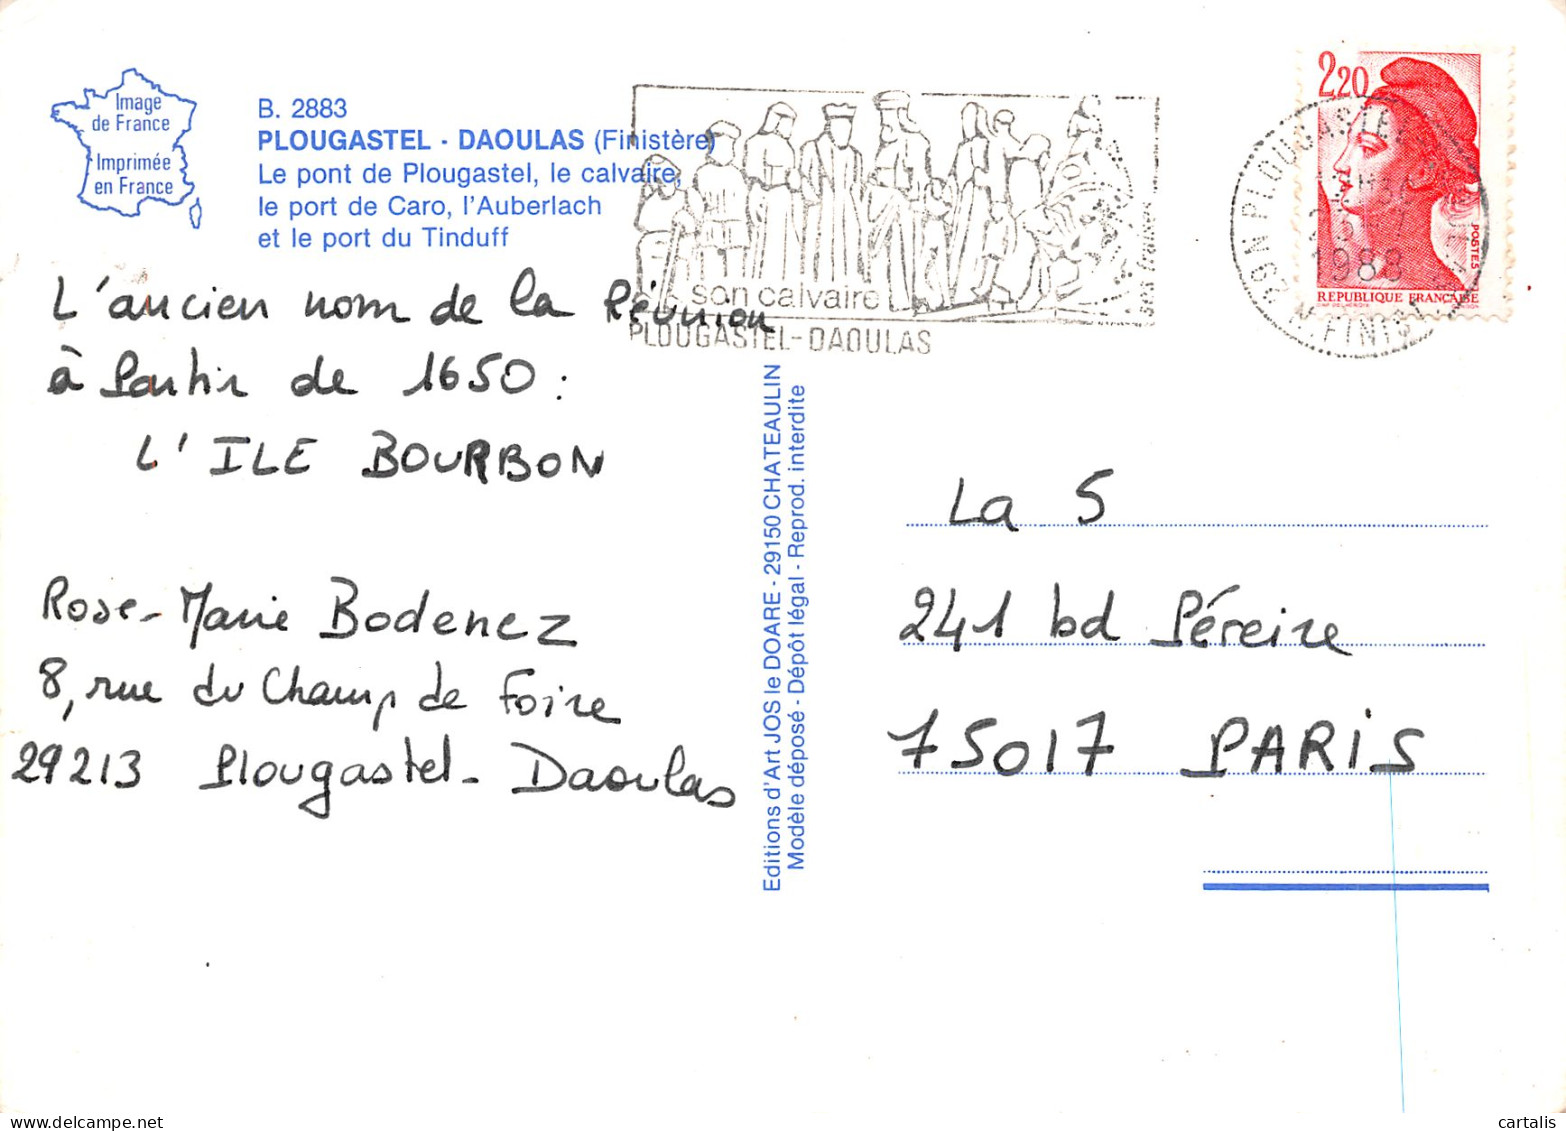 Image
de France
Imprimée
en France
B. 2883
PLOUGASTEL - DAOULAS (Finistère)
Le pont de Plougastel, le calvaire,
le port de Caro, l'Auberlach
et le port du Tinduff
son calvaire
ses fraises
PLOUGASTEL-DAOULAS
2,20
POSTES
REPUBLIQUE FRANÇAISE
29N PLOUGASTEL
1988
FINIST
L'ancien nom de la Réunion
à partir de 1650 :
L'ILE BOURBON
Rose-Marie Bodenez
8, rue du Champ de Foire
29213 Plougastel-Daoulas
Editions d'Art JOS le DOARE - 29150 CHATEAULIN
Modèle déposé - Dépôt légal - Reprod. interdite
La 5
241 bd Péreire
75017 PARIS
cartalis